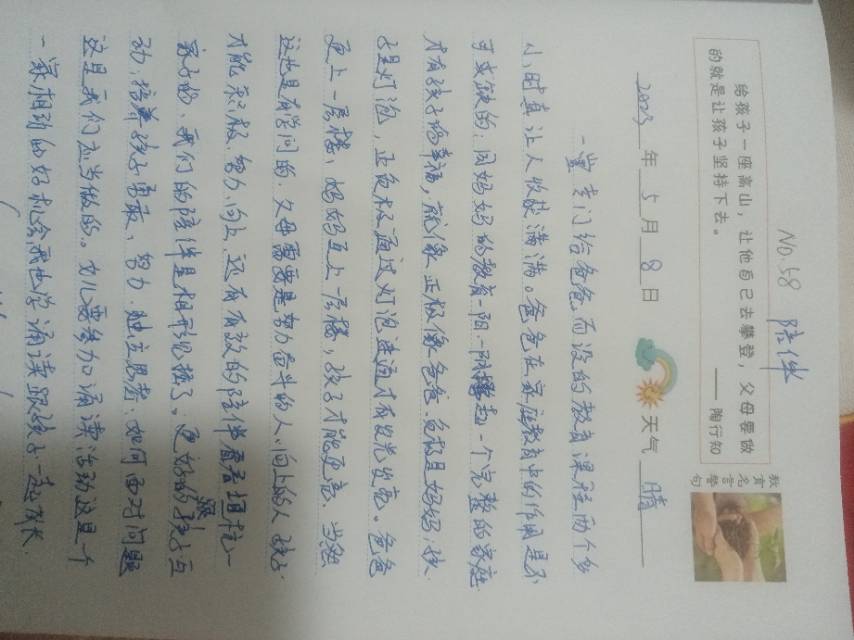 No.58 陪伴
给孩子一座高山,让他自己去攀登,父母要做
的就是让孩子坚持下去。
——陶行知
教育名言警句
2023年5月8日 天气 晴
一堂专门给爸爸而设的教育课程两个多
小时真让人收获满满。爸爸在家庭教育中的作用是不
可或缺的,同妈妈的教育一阳一阴 一个完整的家庭
才有孩子的幸福,就像正极像爸爸,负极是妈妈,孩
子是灯泡,正负极通过灯泡连通才有发光发亮。爸爸
更上一层楼,妈妈再上一层楼,孩子才能更高,当然
这也是有学问的,父母需要是努力奋斗的人,向上的人孩子
才能积极,努力,向上,还有有效的陪伴看着
孩子的,我们的陪伴是相形见拙了。更好的跟孩子互
动,培养孩子勇敢、努力、独立思考、如何面对问题
这是我们应当做的。女儿要参加诵读活动这是个
一家相动的好机会我也学诵读跟孩子一起成长.